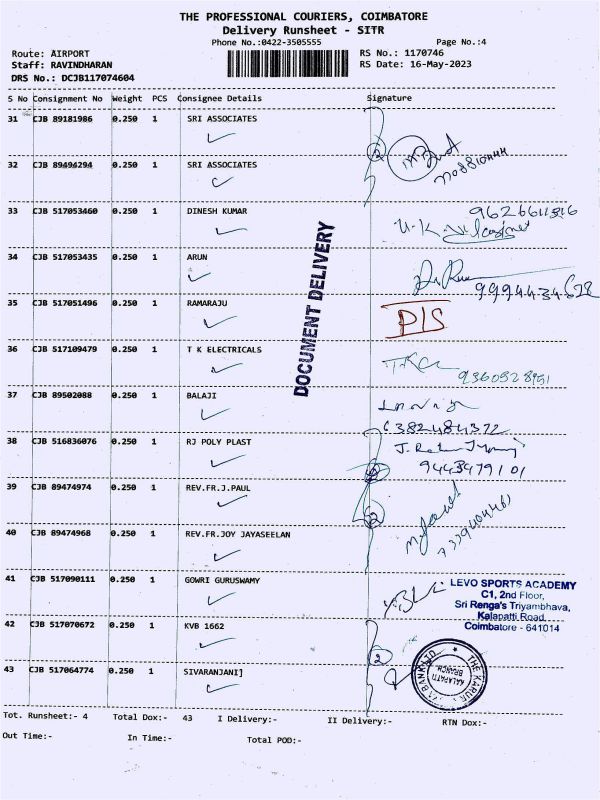 THE PROFESSIONAL COURIERS, COIMBATORE
Delivery Runsheet - SITR
Phone No.:0422-3505555 Page No.:4
Route: AIRPORT RS No.: 1170746
Staff: RAVINDHARAN RS Date: 16-May-2023
DRS No.: DCJB117074604
S No Consignment No Weight PCS Consignee Details Signature
31 CJB 89181986 0.250 1 SRI ASSOCIATES
32 CJB 89494294 0.250 1 SRI ASSOCIATES
2
33 CJB 517053460 0.250 1 DINESH KUMAR
34 CJB 517053435 0.250 1 ARUN
9994434628
35 CJB 517051496 0.250 1 RAMARAJU
DOCUMENT DELIVERY
36 CJB 517109479 0.250 1 T K ELECTRICALS
37 CJB 89502088 0.250 1 BALAJI
6382484372
38 CJB 516836076 0.250 1 RJ POLY PLAST
9443479101
39 CJB 89474974 0.250 1 REV.FR.J.PAUL
2
40 CJB 89474968 0.250 1 REV.FR.JOY JAYASEELAN
41 CJB 517090111 0.250 1 GOWRI GURUSWAMY
LEVO SPORTS ACADEMY
C1, 2nd Floor,
Sri Renga's Triyambhava,
Kalapatti Road,
Coimbatore - 641014
42 CJB 517070672 0.250 1 KVB 1662
2
43 CJB 517064774 0.250 1 SIVARANJANI]
THE KARUR BANK LTD
KALAPATTI
BRANCH
Tot. Runsheet:- 4 Total Dox:- 43 I Delivery:- II Delivery:- RTN Dox:-
Out Time:- In Time:- Total POD:-